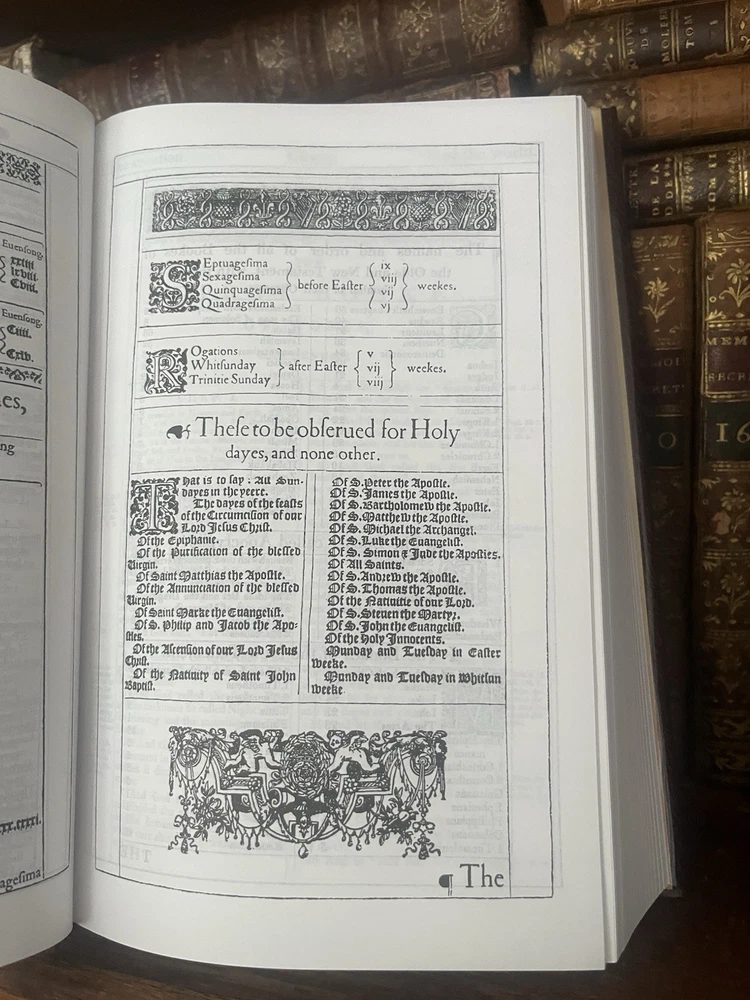 Euensong.
xxiiij
lxviij.
Cviij.
Euensong.
Ciiij.
Cxlv.
es,
ng
agesima
Septuagesima
Sexagesima
Quinquagesima
Quadragesima
before Easter
ix
viij
vij
vj
weekes.
Rogations
Whitsunday
Trinitie Sunday
after Easter
v
vij
viij
weekes.
These to be obserued for Holy
dayes, and none other.
That is to say: All Sun-
dayes in the yeere.
The dayes of the feasts
of the Circumcision of our
Lord Jesus Christ.
Of the Epiphanie.
Of the Purification of the blessed
Virgin.
Of Saint Matthias the Apostle.
Of the Annunciation of the blessed
Virgin.
Of Saint Marke the Euangelist.
Of S. Philip and Jacob the Apo-
stles.
Of the Ascension of our Lord Jesus
Christ.
Of the Nativity of Saint John
Baptist.
Of S. Peter the Apostle.
Of S. James the Apostle.
Of S. Bartholomew the Apostle.
Of S. Matthew the Apostle.
Of S. Michael the Archangel.
Of S. Luke the Euangelist.
Of S. Simon & Jude the Apostles.
Of All Saints.
Of S. Andrew the Apostle.
Of S. Thomas the Apostle.
Of the Natiuitie of our Lord.
Of S. Steuen the Martyr.
Of S. John the Euangelist.
Of the Holy Innocents.
Munday and Tuesday in Easter
weeke.
Munday and Tuesday in Whitsun
weeke
¶ The
DE
TOM
DE LA
TOM II
16